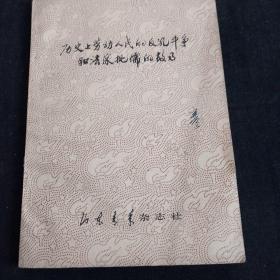 历史上劳动人民的反孔斗争
和法家批儒的故事
杂志社